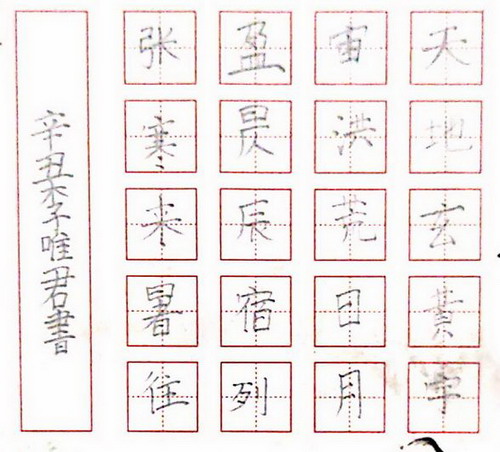 天地玄黄宇
宙洪荒日月
盈昃辰宿列
张寒来暑往
辛丑李唯君書